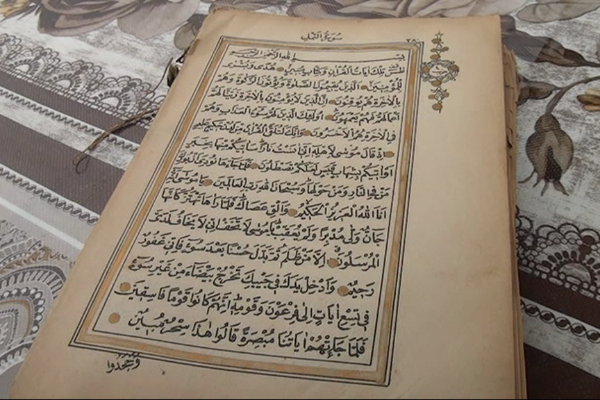 سُورَةُ النَّمْلِ
بِسْمِ اللّٰهِ الرَّحْمٰنِ الرَّحِيمِ
طٰسٓ تِلْكَ اٰيَاتُ الْقُرْاٰنِ وَكِتَابٍ مُبِينٍ هُدًى وَبُشْرٰى
لِلْمُؤْمِنِينَ اَلَّذِينَ يُقِيمُونَ الصَّلٰوةَ وَيُؤْتُونَ الزَّكٰوةَ وَهُمْ
بِالْاٰخِرَةِ هُمْ يُوقِنُونَ اِنَّ الَّذِينَ لَا يُؤْمِنُونَ بِالْاٰخِرَةِ زَيَّنَّا لَهُمْ
اَعْمَالَهُمْ فَهُمْ يَعْمَهُونَ اُولٰئِكَ الَّذِينَ لَهُمْ سُوءُ الْعَذَابِ وَهُمْ
فِي الْاٰخِرَةِ هُمُ الْاَخْسَرُونَ وَاِنَّكَ لَتُلَقَّى الْقُرْاٰنَ مِنْ لَدُنْ حَكِيمٍ عَلِيمٍ
اِذْ قَالَ مُوسٰى لِاَهْلِهِ اِنِّي اٰنَسْتُ نَارًا سَاٰتِيكُمْ مِنْهَا بِخَبَرٍ
اَوْ اٰتِيكُمْ بِشِهَابٍ قَبَسٍ لَعَلَّكُمْ تَصْطَلُونَ فَلَمَّا جَاءَهَا نُودِيَ اَنْ بُورِكَ
مَنْ فِي النَّارِ وَمَنْ حَوْلَهَا وَسُبْحَانَ اللّٰهِ رَبِّ الْعَالَمِينَ يَا مُوسٰى اِنَّهُ
اَنَا اللّٰهُ الْعَزِيزُ الْحَكِيمُ وَاَلْقِ عَصَاكَ فَلَمَّا رَاٰهَا تَهْتَزُّ كَاَنَّهَا
جَانٌّ وَلّٰى مُدْبِرًا وَلَمْ يُعَقِّبْ يَا مُوسٰى لَا تَخَفْ اِنِّي لَا يَخَافُ لَدَيَّ
الْمُرْسَلُونَ اِلَّا مَنْ ظَلَمَ ثُمَّ بَدَّلَ حُسْنًا بَعْدَ سُوءٍ فَاِنِّي غَفُورٌ
رَحِيمٌ وَاَدْخِلْ يَدَكَ فِي جَيْبِكَ تَخْرُجْ بَيْضَاءَ مِنْ غَيْرِ سُوءٍ
فِي تِسْعِ اٰيَاتٍ اِلٰى فِرْعَوْنَ وَقَوْمِهِ اِنَّهُمْ كَانُوا قَوْمًا فَاسِقِينَ
فَلَمَّا جَاءَتْهُمْ اٰيَاتُنَا مُبْصِرَةً قَالُوا هٰذَا سِحْرٌ مُبِينٌ
وَجَحَدُوا